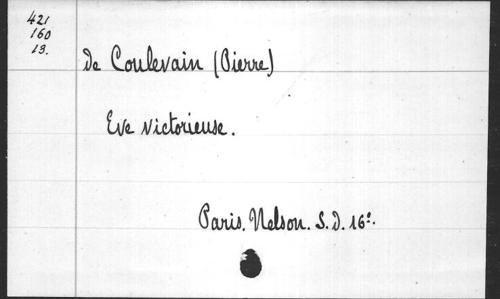 421
160
13.
de Coulevain (Pierre)
Eve victorieuse.
Paris. Nelson. S.D. 16º.